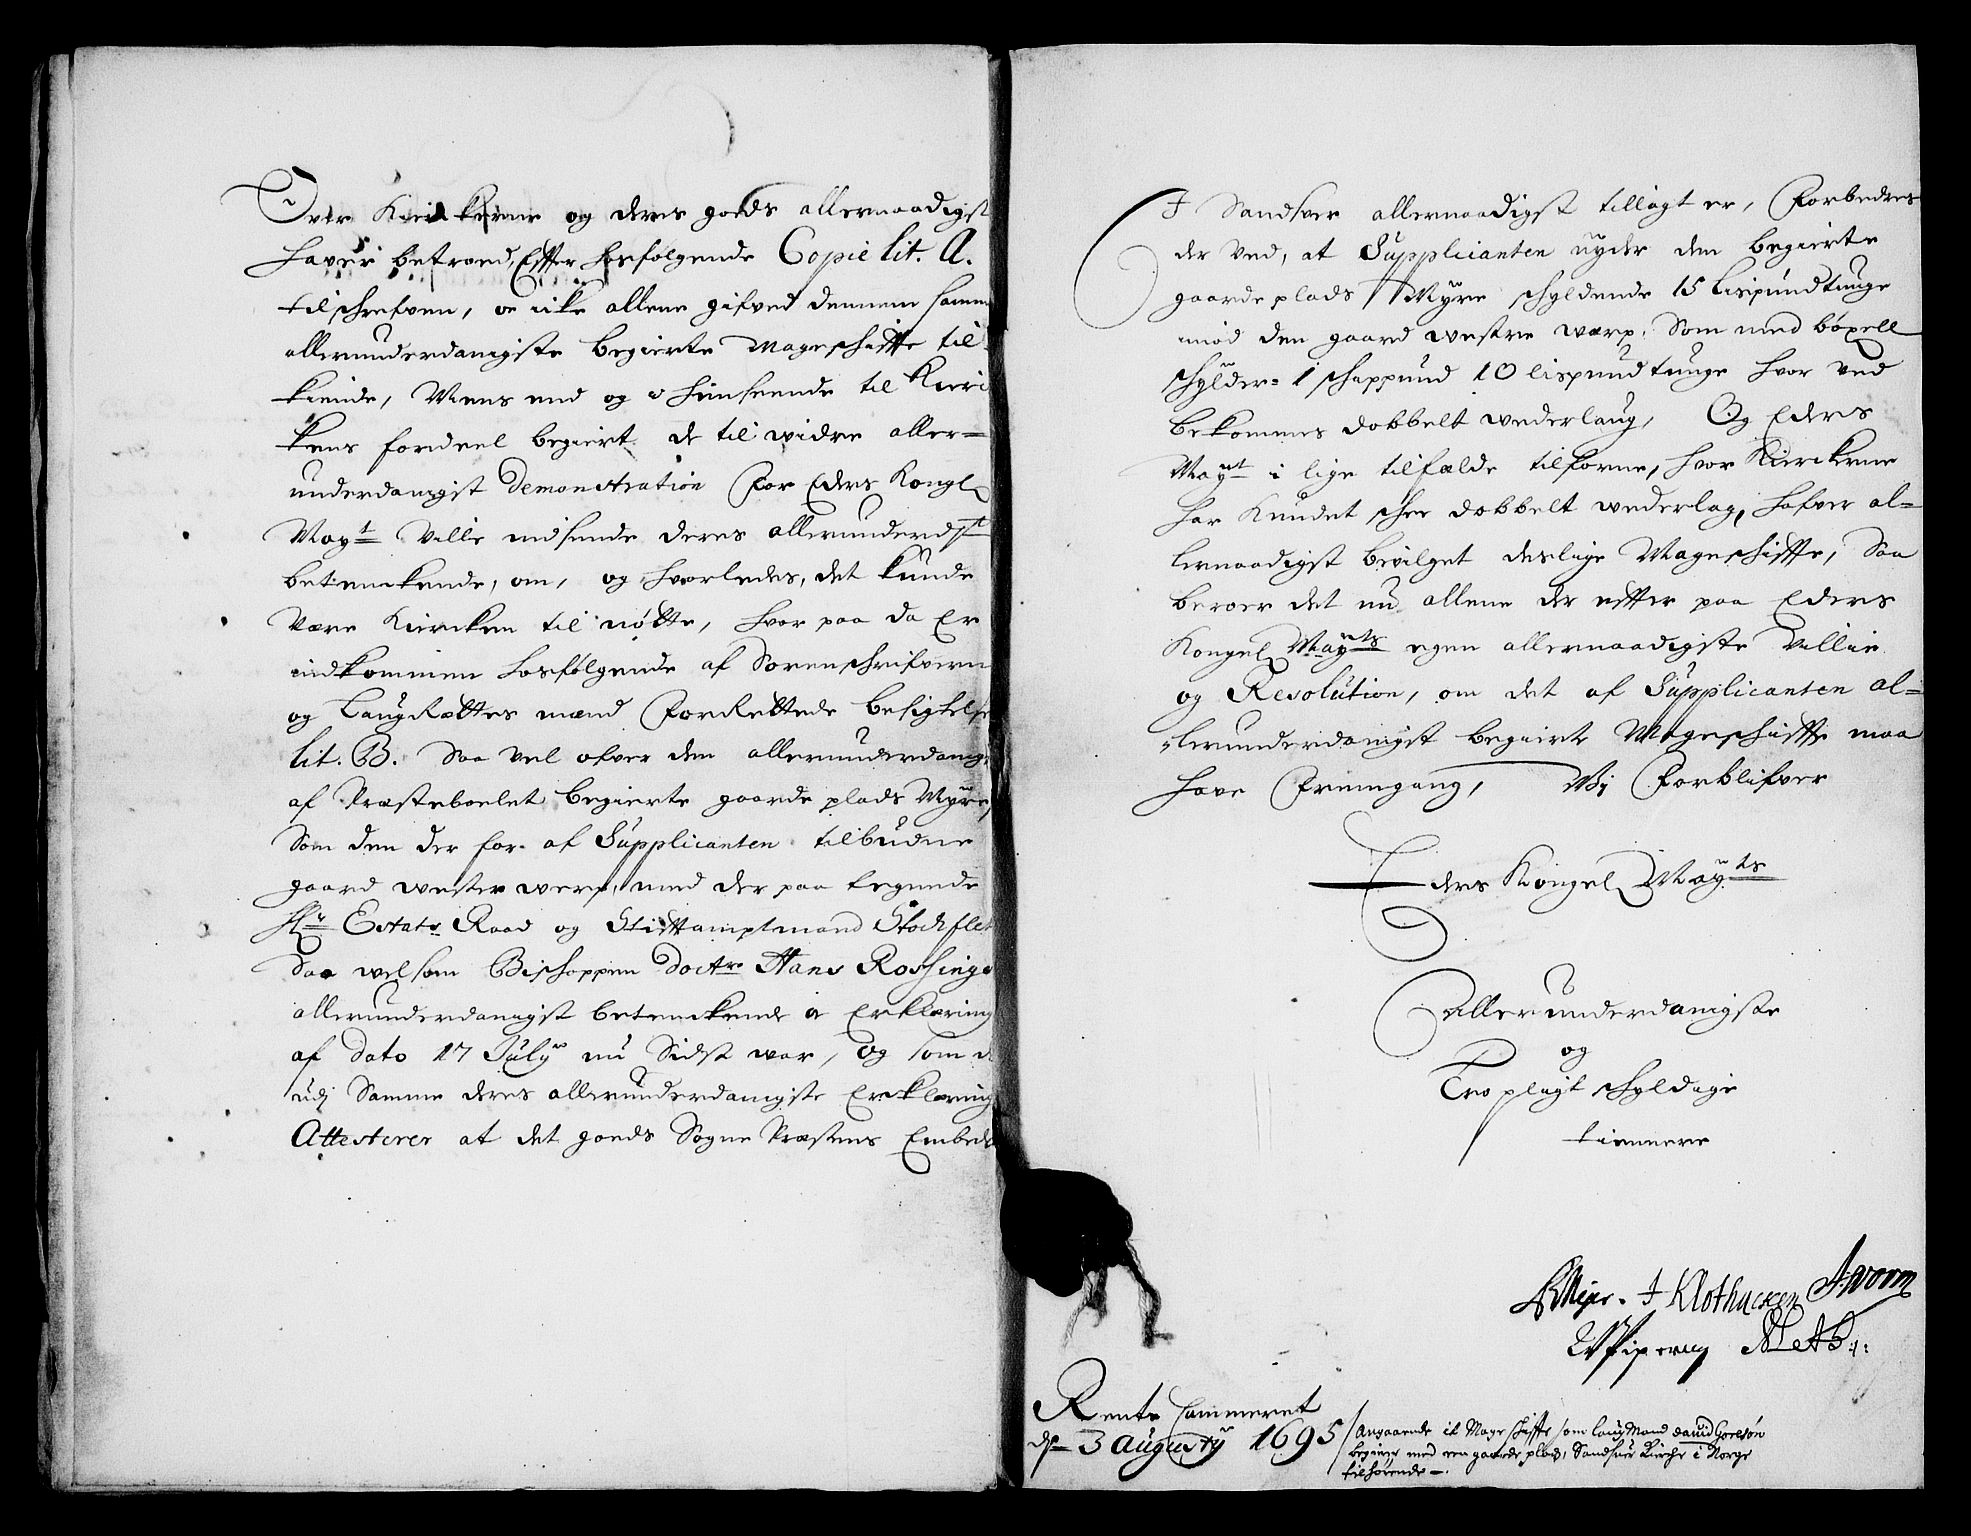 Over Kierkerne og deres goeds allernaadigst
haver betroed, Effter hosfølgende Copie lit. A.
tilschrefven, at icke allene gifved dennem samme
allerunderdanigste begierte Mageschiffte til
kiende, Mens end og i henseende til Kier
kens fordeel begiert de til widre aller=
underdanigst Demonstration For Eders Kongl
Mayt Ville indsende deres allerunderdst
betenckende, om, og hvorledes, det kunde
Være Kiercken til nøtte, hvor paa da Er
indkommen hosfølgende af Sorenschrifveren
og Laugrættes mænd Forrettede besigtelse
lit. B. Saa vel ofver den allerunderdanig
af Præsteboelet begierte gaarde plads Myre,
Som den der for af Supplicanten tilbudne
gaard wester werp, med der paa tegnede
Hr Estats Raad og Stifftamptmand Stockflet
Saa welsom Bischoppen Doctr Hans Rosings
allerunderdanigst betenckende og Erklæring
af Dato 17 July nu Sidst war, Og som de
udj Samme deres allerunderdanigste Erklæring
Attesterer at det goeds Sogne Præstens Embede
I Sandsver allernaadigst tillagt er, Forbedres
der ved, at Supplicanten nyder den begierte
gaarde plads Myre schyldende 15 Lispund tunge
imod den gaard westre werp, Som med bøxell
schylder 1 schippund 10 lispund tunge hvor ved
bekommes dobbelt wederlaug, Og Eders
Mayt i lige tilfælde tilforne, hvor Kierckerne
har kundet schee dobbelt wederlag, hafver al=
lernaadigst bevilget deslige Mageschiffte, Saa
beroer det nu allene der effter paa Eders
Kongel Mayts egen allernaadigste Villie
og Resolution, om det af Supplicanten al=
lerunderdanigst begierte Mageschiffte maa
have Fremgang, Vi Forblifver
Eders Kongel Mayts
Allerunderdanigste
og
Troplagt schyldige
tiennere
Meier. J Klothacken A. Worm
Rente Cammeret
d 3 Augusty 1695
/Angaaende it Mageschiffte som laugMand David Goertsøn
begierer med een gaarde plads, Sandsuer Kirche i Norge
tilhørende.